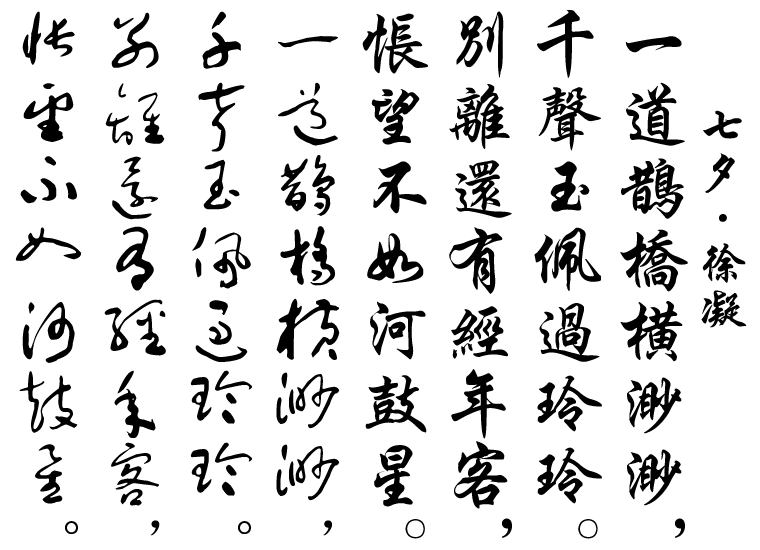 七夕·徐凝
一道鵲橋橫渺渺，
千聲玉佩過玲玲。
別離還有經年客，
悵望不如河鼓星。
一道鵲橋橫渺渺，
千聲玉佩過玲玲。
別離還有經年客，
悵望不如河鼓星。